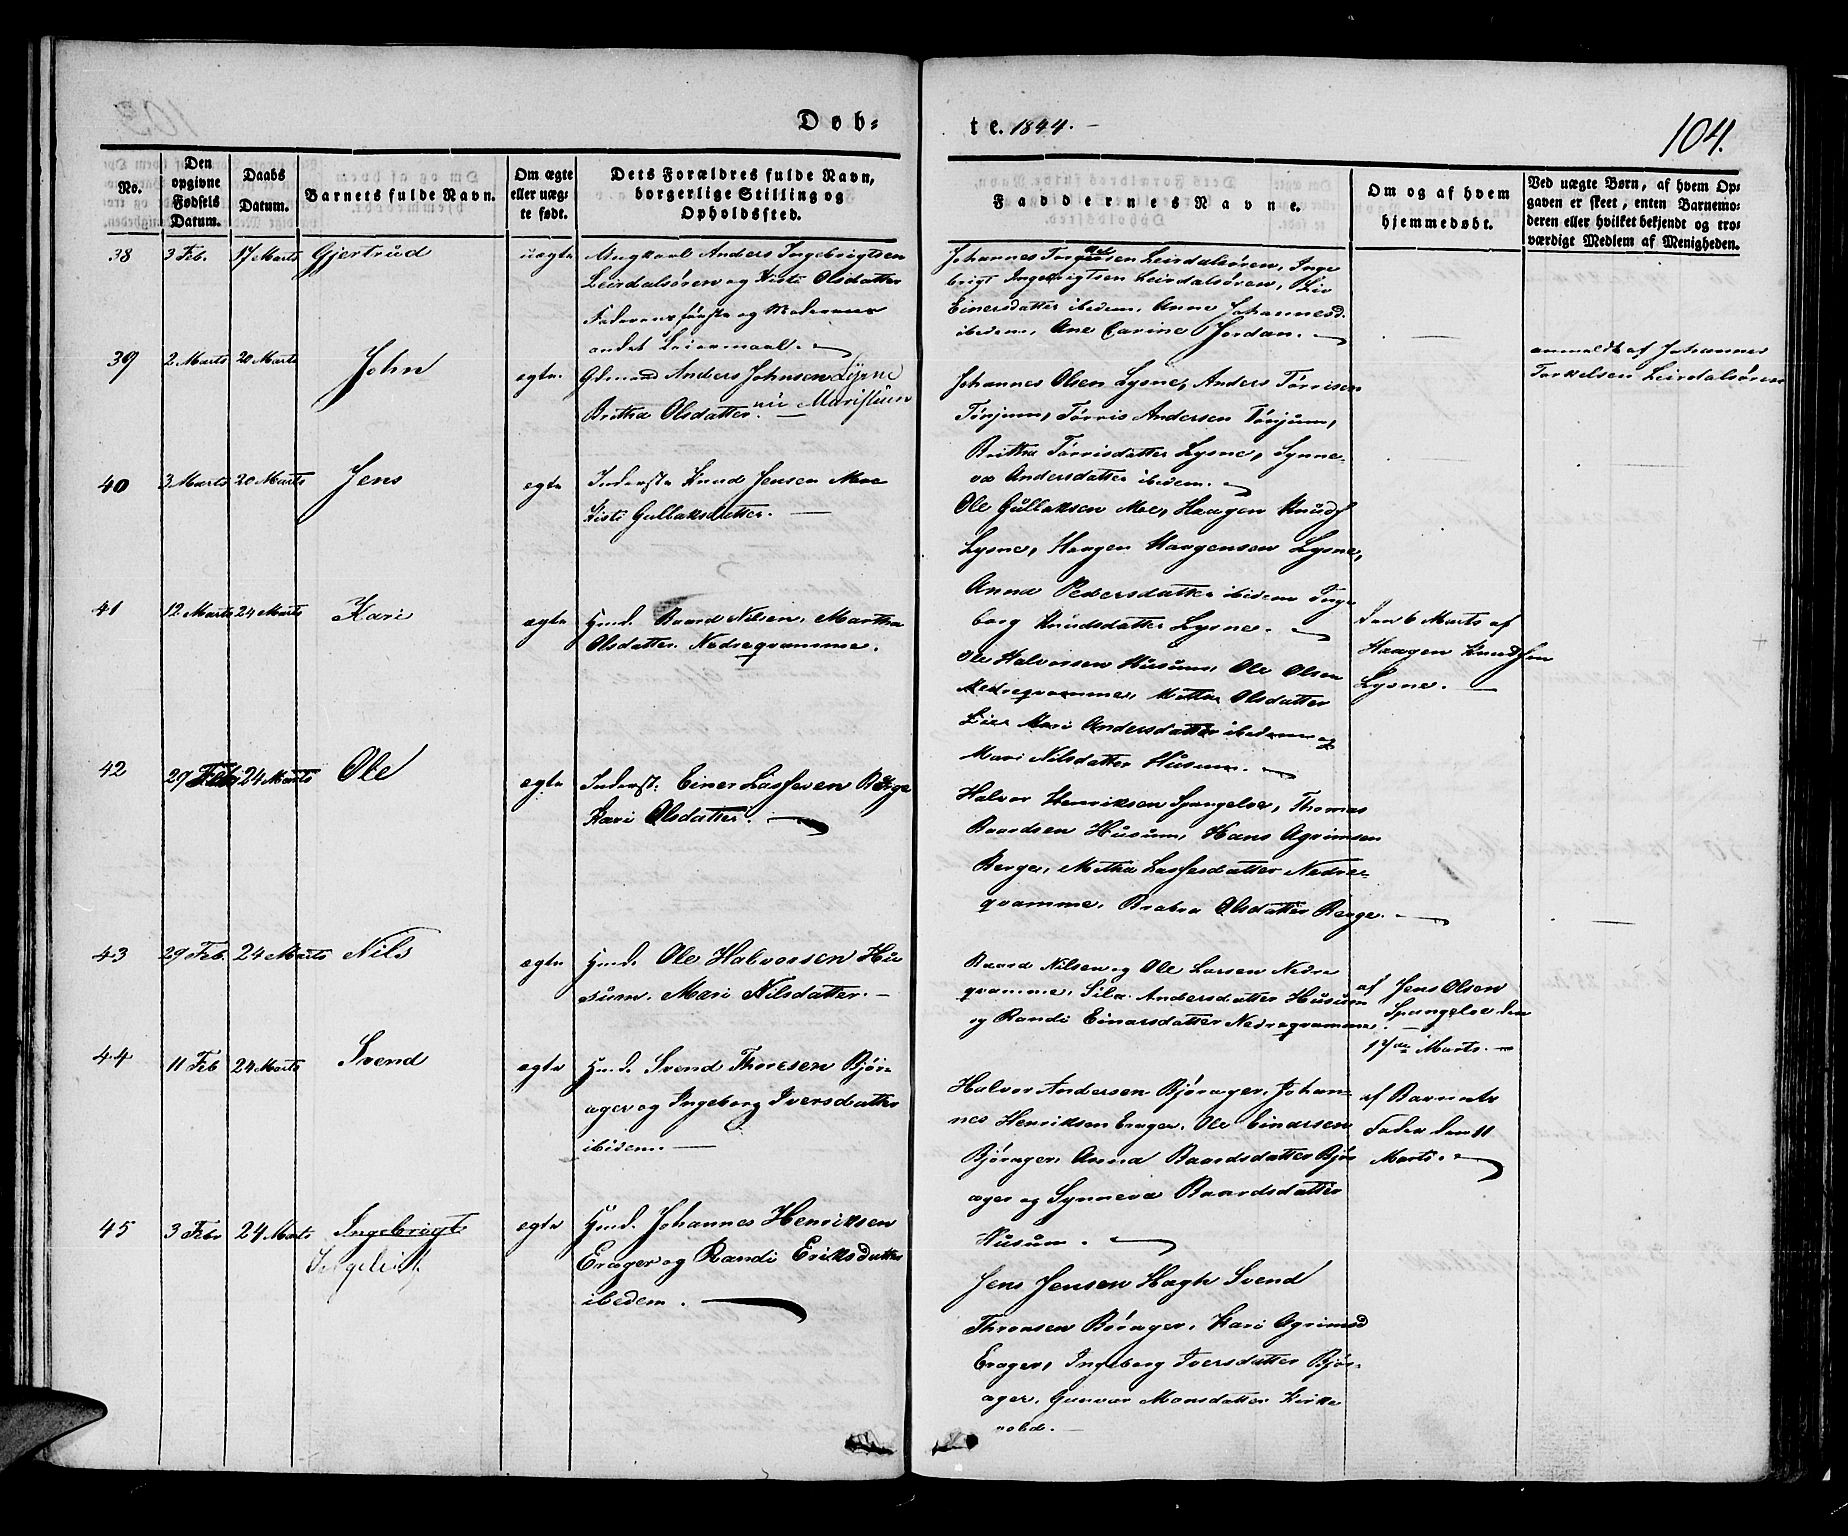 Døb-
te. 1844.
104.
No.
Den
opgivne
Fødsels
Datum.
Daabs
Datum.
Barnets fulde Navn.
Om ægte
eller uæg-
te født.
Dets Forældres fulde Navn,
borgerlige Stilling og
Opholdssted.
Faddernes Navne.
Om og af hvem
hjemmedøbt.
Ved uægte Børn, af hvem Op-
gaven er skeet, enten Barnemo-
deren eller hvilket bekjendt og tro-
værdigt Medlem af Menigheden.
38 3 Feb. 17 Marts Gjertrud uægte
Ungkarl Anders Ingebrigtsen
Leirdalsøren og Kisti Olsdatter
Faderens første og Moderens
andet Leiermaal.
Johannes Leirdalsøren, Inge
brigt Ingebrigtsen Leirdalsøren, Liv
Einersdatter ibidem, Anne Johannesd.
ibidem, Ane Carine Jordan.
anmeldt af Johannes
Torkelsen Leirdalsøren
39 2 Marts 20 Marts John egte.
Gdmand Anders Johnsen Lysne
Britha Olsdatter. nu Maristuen
Johannes Olsen Lysne, Anders Torrisen
Tønjum, Tørris Andersen Tønjum,
Britha Tørrisdatter Lysne, Synne-
va Andersdatter ibidem.
40 3 Marts 20 Marts Jens egte
Inderste Knud Jensen Moe
Kisti Gullaksdatter.
Ole Gullaksen Moe, Haagen Knuds
Lysne, Haagen Haagensen Lysne,
Anna Pedersdatter ibidem Inge
borg Knudsdatter Lysne.
Den 6 Marts af
Haagen Knudsen
Lysne.
41 12 Marts 24 Marts Kari ægte
Gmd. Baard Nilsen, Martha
Olsdatter. Nedreqvamme.
Ole Halvorsen Husum, Ole Olsen
Nedreqvamme, Metha Olsdatter
Mari Andersdatter ibidem og
Mari Nilsdatter Husum.
42 29 Feb 24 Marts Ole egte
Inderst. Einer Lassesen Berge
Kari Olsdatter.
Halvor Henriksen Spangelo, Thomas
Baardsen Husum, Hans Agrimsen
Berge, Metha Lassesdatter Nedre-
qvamme, Brabra Olsdatter Berge.
43 29 Feb. 24 Marts Nils egte
Gmd. Ole Halvorsen Hu
sum. Mari Nilsdatter.
Baard Nilsen og Ole Larsen Nedre
qvamme, Andersdatter Husum
og Randi Einarsdatter Nedreqvamme.
af Jens Olsen
Spangelo den
17de Marts.
44 11 Feb 24 Marts Svend egte
Gmd. Svend Thoresen Bjør-
ager og Ingeborg Iversdatter
ibidem.
Halvor Andersen Bjørager, Johan-
nes Henriksen Erager, Ole Einarsen
Bjørager, Anna Baardsdatter Bjør
ager og Synneva Baardsdatter
Husum.
af Barnets
Fader den 11
Marts.
45 3 Febr 24 Marts Ingebrigt egte
Gmd. Johannes Henriksen
Erager og Randi Eriksdatter
ibidem.
Jens Jensen Hagh Svend
Thronsen Børager, Kari Agrimsd
Erager, Ingeborg Iversdatter Bjør-
ager, Gunvor Monsdatter Kirke
vold.